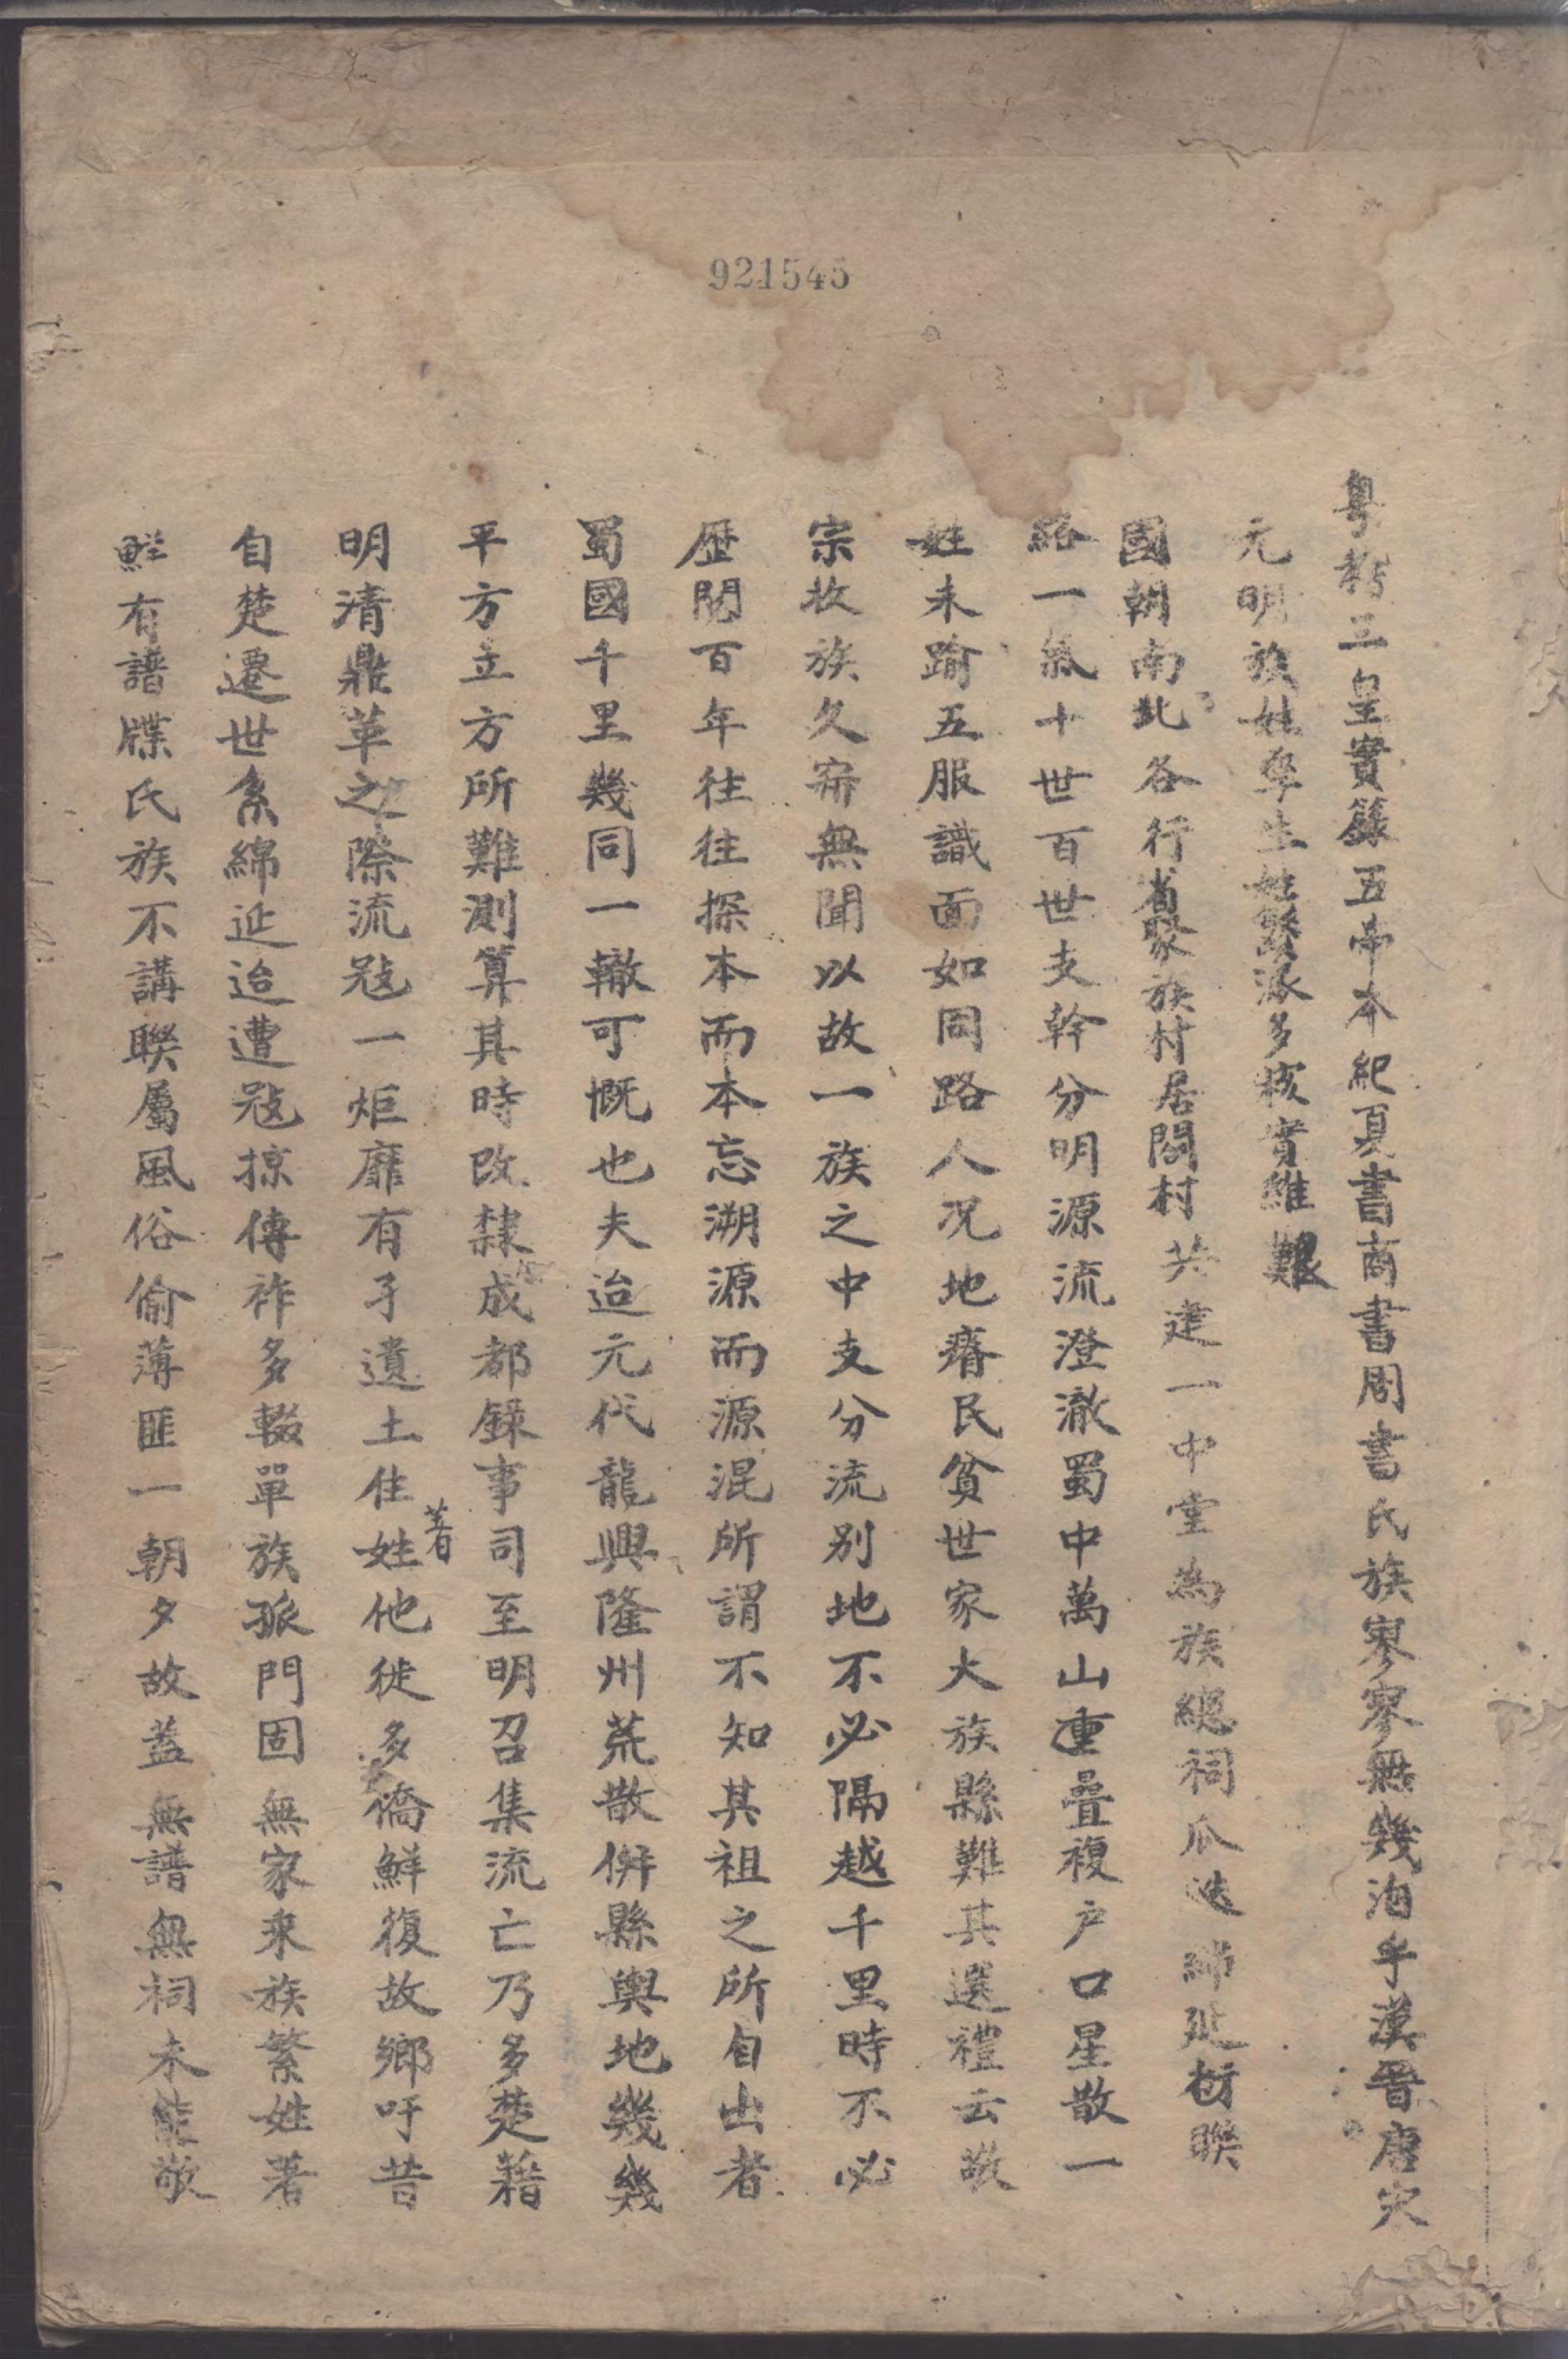 921545
粤稽三皇實錄五帝本紀夏書商書周書氏族寥寥無幾洎乎漢晉唐宋
元明族姓孳生姓繁派多核實維艱
國朝南北各行省聚族村居閤村共建一中堂為族總祠瓜迭綿延衍聯
絡一氣十世百世支幹分明源流澄澈蜀中萬山重疊複户口星散一
姓未踰五服識面如同路人况地瘠民貧世家大族縣難其選禮云敬
宗收族久寂無聞以故一族之中支分流别地不必隔越千里時不必
歴閲百年往往探本而本忘溯源而源混所謂不知其祖之所自出者
蜀國千里幾同一轍可慨也夫迨元代龍興隆州荒散併縣輿地幾幾
平方立方所難測算其時改隸成都錄事司至明召集流亡乃多楚藉
明清鼎革之際流冦一炬靡有孑遺土住著姓他徙多僑鮮復故鄉吁昔
自楚遷世系綿延迨遭冦掠傳祚多輟單族孤門固無家来族繁姓著
鮮有譜牒氏族不講聯屬風俗偷薄匪一朝夕故葢無譜無祠未能敬